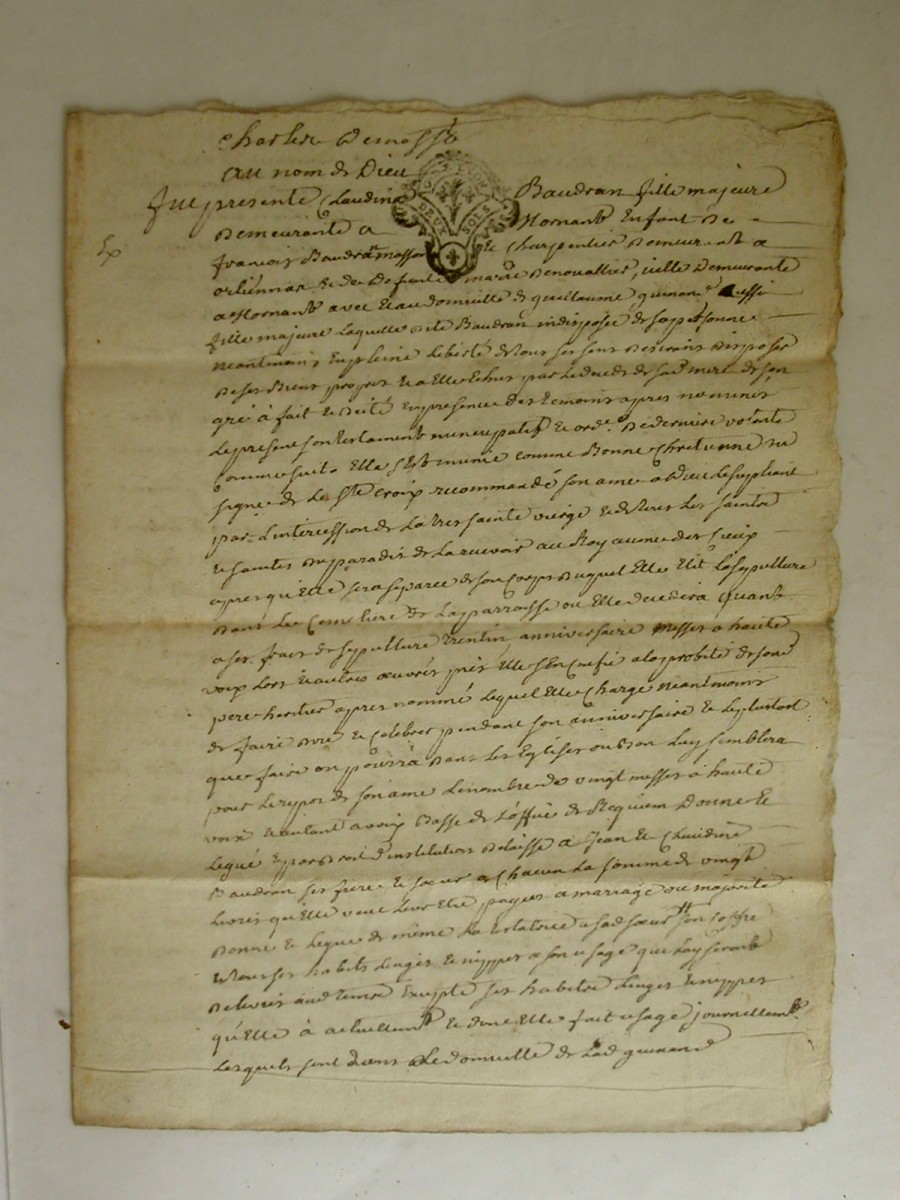 Charles Demosse
au nom de Dieu
fut presente Claudine Baudran fille majeure
Demeurante a Mornant Enfant De
Ex
francois Baudran masson & Charpentier Demeurant a
orliennas & de Defunte marie Benouallier, icelle Demeurante
a Mornant avec & au domicille de guillaume guinand aussi
fille majeure laquelle dite Baudran indisposée de sa personne
neantmoins En pleine Liberté de tous ses sens Desirant disposer
De ses Biens propres & a Elle Echus par le deceds de sad mere de son
gré à fait & Dicté En presence des temoins apres nommés
Le present son testament nuncupatif & ord.e De derniere volonté
Comme suit. Elle s'Est munie comme Bonne Chretienne du
signe de la Ste Croix recommandé son ame a Dieu Le supliant
par L'intercession de La tres sainte vierge & de tous Les saints
& saintes du paradis de La recevoir au Royaume des Cieux
apres qu'Elle sera separée de son Corps Duquel Elle Elit La sepulture
Dans Le Cimetiere de La parroisse ou Elle decedera Quant
a ses frais de sepulture trentin anniversaire Messes à haute
voix Lors & autres oeuvres pies Elle s'En Confie a la probité de sond
pere heritier apres nommé Lequel Elle Charge Neantmoins
de faire dire & Celebrer pendant son anniversaire & le plustost
que faire on pourra Dans les Eglises ou Bon Luy semblera
pour Le repos de son ame Le nombre de vingt messes à haute
voix & autant a voix Basse de L'office de Requiem Donne &
Legue & par Droit d'institution Delaisse a Jean & Claudine
Baudran ses frere & soeur a Chacun La somme de vingt
Livres qu'Elle veut Leur Etre payées a mariage ou majorité
Donne & Legue de même La testatrice a sad soeur son Coffre
& tous ses habits Linges & nippes a son usage qui Luy seront
Delivrés aud temps Excepté ses habits Linges & nippes
qu'Elle à actuellemt & dont Elle fait usage journellemt
Lesquels sont dans Le domicille de Lad guinand